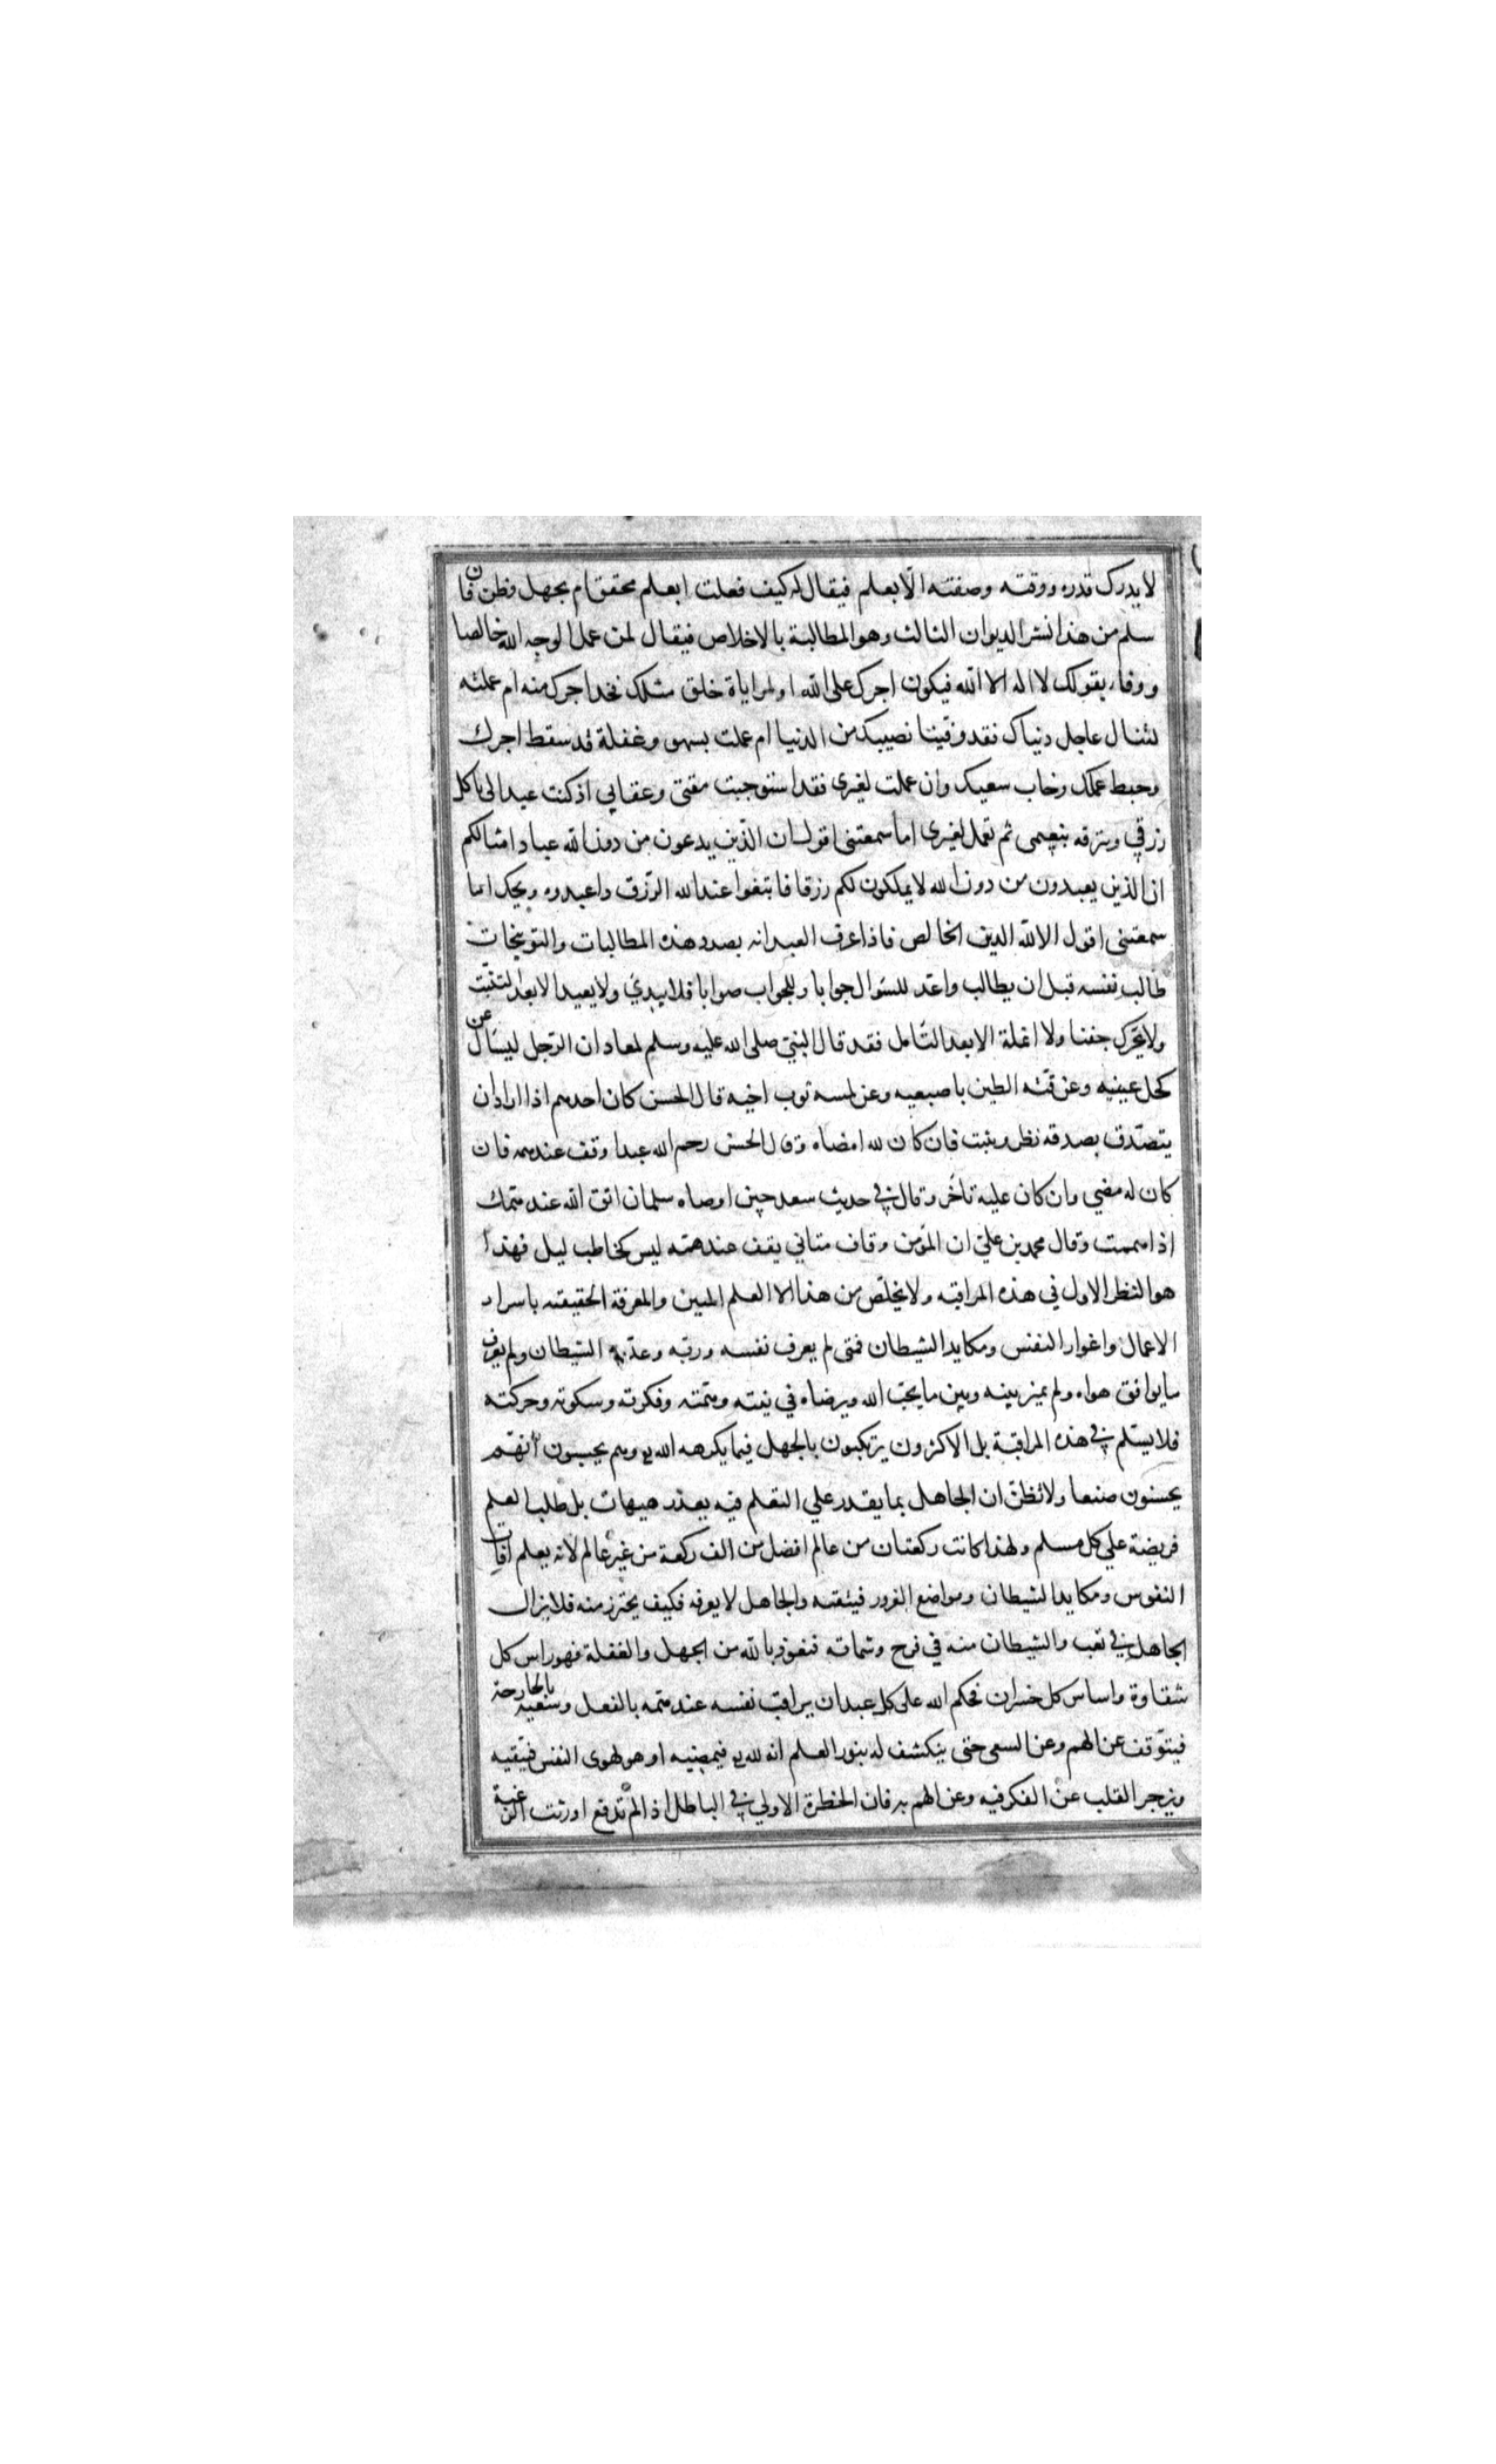 لا يدرك قدره ووقته وصفته الّا بعلم فيقال له كيف فعلت ابعلم محقق ام بجهل وظن فان
سلم من هذا نشر الديوان الثالث وهو المطالبة بالاخلاص فيقال لمن عمل الوجه الله خالصا
ووفاء بقولك لا اله الا الله فيكون اجرك على الله او لمراياة خلق مثلك فخذ اجرك منه ام عملته
لتنال عاجل دنياك فقد وفينا نصيبك من الدنيا ام عملت بسهو وغفلة فقد سقط اجرك
وحبط عملك وخاب سعيك وان عملت لغيرى فقد استوجبت مقتى وعقابي اذ كنت عبدا لى تاكل
رزقي وتترفه بنعمى ثم تعمل لغيرى اما سمعتنى اقول ان الّذين يدعون من دون الله عباد امثالكم
ان الذين يعبدون من دون الله لا يملكون لكم رزقا فابتغوا عند الله الرّزق واعبدوه ويحك اما
سمعتنى اقول الا لله الدين الخالص فاذا عرف العبد انه بصدد هذه المطالبات والتوبيخات
طالب نفسه قبل ان يطالب واعّد للسّوال جوابا وللجواب صوابا فلا يبدئ ولا يعيد الا بعد التثبّت
ولا يحّرك جفنا ولا انملة الا بعد التّامل فقد قال النبيّ صلى الله عليه وسلم لمعاد ان الرّجل ليسال عن
كحل عينيه وعن فتّه الطين باصبعيه وعن لمسه ثوب اخيه قال الحسن كان احدهم اذا اراد ان
يتصّدق بصدقه نظر وتثبت فان كان لله امضاه وقال الحسن رحم الله عبدا وقف عند همه فان
كان له مضي وان كان عليه تأخّر وقال في حديث سعد حين اوصاه سلمان اتق الله عند همّك
اذا هممت وقال محمد بن عليّ ان المؤمن وقاف متاني يقف عند همّه ليس كخاطب ليل فهذا
هو النظر الاول في هذه المراقبه ولا يخلّص من هذا الا العلم المبين والمعرفة الحقيقته باسرار
الاعمال واغوار النفس ومكايد الشيطان فمتى لم يعرف نفسه وربّه وعدّوه الشيطان ولم يعرف
ما يوافق هواه ولم يميز بينه وبين ما يحبّ الله ويرضاه في نيته وهمّته وفكرته وسكوته وحركته
فلا يسلم في هذه المراقبة بل الاكثرون يرتكبون بالجهل فيما يكرهه الله وهم يحسبون أنهم
يحسنون صنعا ولا تظنّ ان الجاهل بما يقدر علي التعلم فيه يعذر هيهات بل طلب العلم
فريضة علي كل مسلم ولهذا كانت ركعتان من عالم افضل من الف ركعة من غير عالم لانه يعلم افات
النفوس ومكايد الشيطان ومواضع الغرور فيتقته والجاهل لا يعرفه فكيف يحترز منه فلا يزال
الجاهل في تعب والشيطان منه في فرح وشماته فنعوذ بالله من الجهل والغفلة فهو راس كل
شقاوة واساس كل خسران فحكم الله على كل عبد ان يراقب نفسه عند همّه بالفعل وسعيه بالجارحة
فيتوّقف عن الهم وعن السعى حتى ينكشف له بنور العلم انه لله فيمضيه او هو لهوى النفس فيتّقيه
ويزجر القلب عن الفكر فيه وعن الهم به فان الخطرة الاولي في الباطل اذا لم تدفع اورثت الرغبة